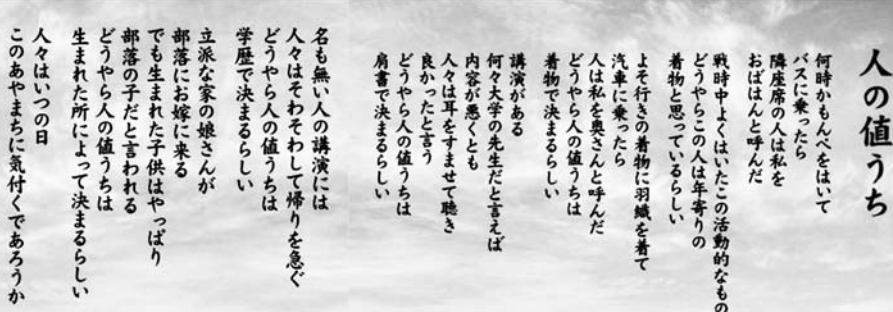 人の値うち
何時かもんぺをはいて
バスに乗ったら
隣座席の人は私を
おばはんと呼んだ
戦時中よくはいたこの活動的なもの
どうやらこの人は年寄りの
着物と思っているらしい
よそ行きの着物に羽織を着て
汽車に乗ったら
人は私を奥さんと呼んだ
どうやら人の値うちは
着物で決まるらしい
講演がある
何々大学の先生だと言えば
内容が悪くとも
人々は耳をすませて聴き
良かったと言う
どうやら人の値うちは
肩書で決まるらしい
名も無い人の講演には
人々はそわそわして帰りを急ぐ
どうやら人の値うちは
学歴で決まるらしい
立派な家の娘さんが
部落にお嫁に来る
でも生まれた子供はやっぱり
部落の子だと言われる
どうやら人の値うちは
生まれた所によって決まるらしい
人々はいつの日
このあやまちに気付くであろうか